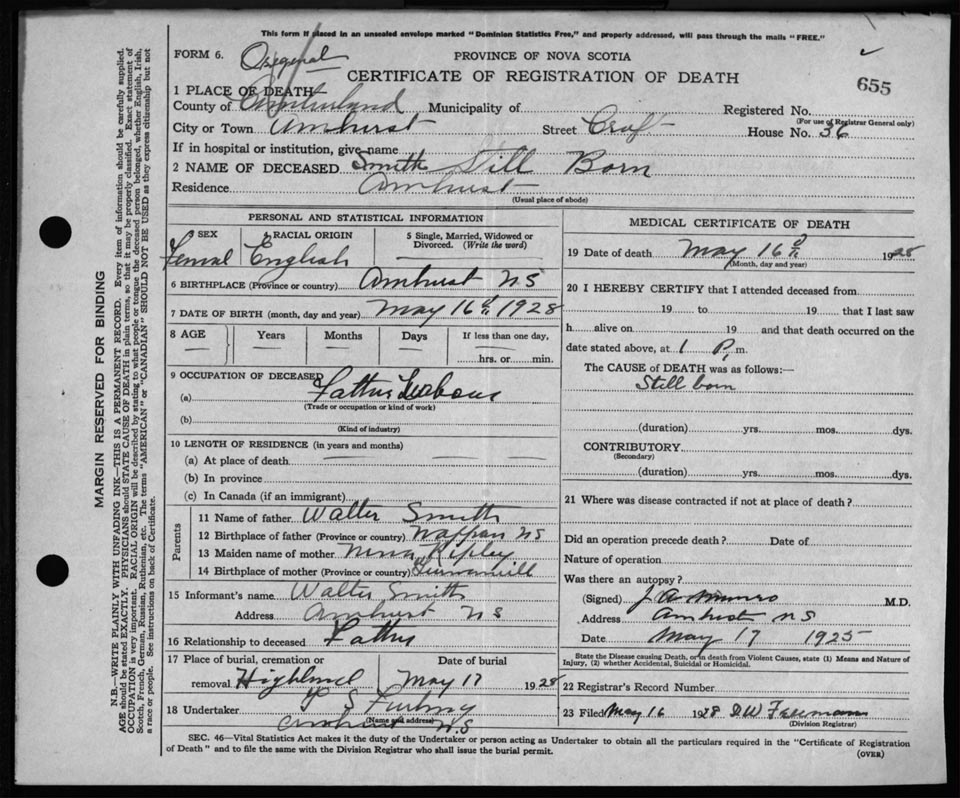 This form if placed in an unsealed envelope marked "Dominion Statistics Free," and properly addressed, will pass through the mails "FREE."
FORM 6. Original
PROVINCE OF NOVA SCOTIA
CERTIFICATE OF REGISTRATION OF DEATH
655
1 PLACE OF DEATH
County of Cumberland Municipality of Registered No.
(For use of Registrar General only)
City or Town Amhurst Street Croft House No. 36
If in hospital or institution, give name
2 NAME OF DECEASED Smith Still Born
Residence Amhurst
(Usual place of abode)
PERSONAL AND STATISTICAL INFORMATION
3 SEX 4 RACIAL ORIGIN 5 Single, Married, Widowed or Divorced. (Write the word)
Femal English
6 BIRTHPLACE (Province or country) Amhurst N S
7 DATE OF BIRTH (month, day and year) May 16 1928
8 AGE Years Months Days If less than one day,
hrs. or min.
9 OCCUPATION OF DECEASED
(a) Fathers
(Trade or occupation or kind of work)
(b)
(Kind of industry)
10 LENGTH OF RESIDENCE (in years and months)
(a) At place of death
(b) In province
(c) In Canada (if an immigrant)
Parents
11 Name of father Walter Smith
12 Birthplace of father (Province or country) Nappan NS
13 Maiden name of mother Nina Ripley
14 Birthplace of mother (Province or country)
15 Informant's name Walter Smith
Address Amhurst N S
16 Relationship to deceased Father
17 Place of burial, cremation or removal Highland Date of burial May 17 1928
18 Undertaker
(Name and address)
Amhurst N.S
MEDICAL CERTIFICATE OF DEATH
19 Date of death May 16 1928
(Month, day and year)
20 I HEREBY CERTIFY that I attended deceased from
19 to 19 that I last saw
h alive on 19 and that death occurred on
date stated above, at 1 P. m.
The CAUSE of DEATH was as follows:—
Still born
(duration) yrs. mos. dys.
CONTRIBUTORY
(Secondary)
(duration) yrs. mos. dys.
21 Where was disease contracted if not at place of death?
Did an operation precede death? Date of
Nature of operation
Was there an autopsy?
(Signed) J. A. Munro M.D.
Address Amhurst N S
Date May 17 1925
State the Disease causing Death, or in death from Violent Causes, state (1) Means and Nature of Injury, (2) whether Accidental, Suicidal or Homicidal.
22 Registrar's Record Number
23 Filed May 16 1928 D W Freeman
(Division Registrar)
SEC. 46—Vital Statistics Act makes it the duty of the Undertaker or person acting as Undertaker to obtain all the particulars required in the "Certificate of Registration
of Death" and to file the same with the Division Registrar who shall issue the burial permit.
(OVER)
MARGIN RESERVED FOR BINDING
N.B.—WRITE PLAINLY WITH UNFADING INK—THIS IS A PERMANENT RECORD. Every item of information should be carefully supplied.
AGE should be stated EXACTLY. PHYSICIANS should STATE CAUSE OF DEATH in plain terms, so that it may be properly classified. Exact statement of
OCCUPATION is very important. RACIAL ORIGIN will be described by stating to what people or tongue the deceased person belonged, whether English, Irish,
Scotch, French, German, Russian, Ruthenian, etc. The terms "AMERICAN" or "CANADIAN" SHOULD NOT BE USED as they express citizenship but not
a race or people. See instructions on back of Certificate.